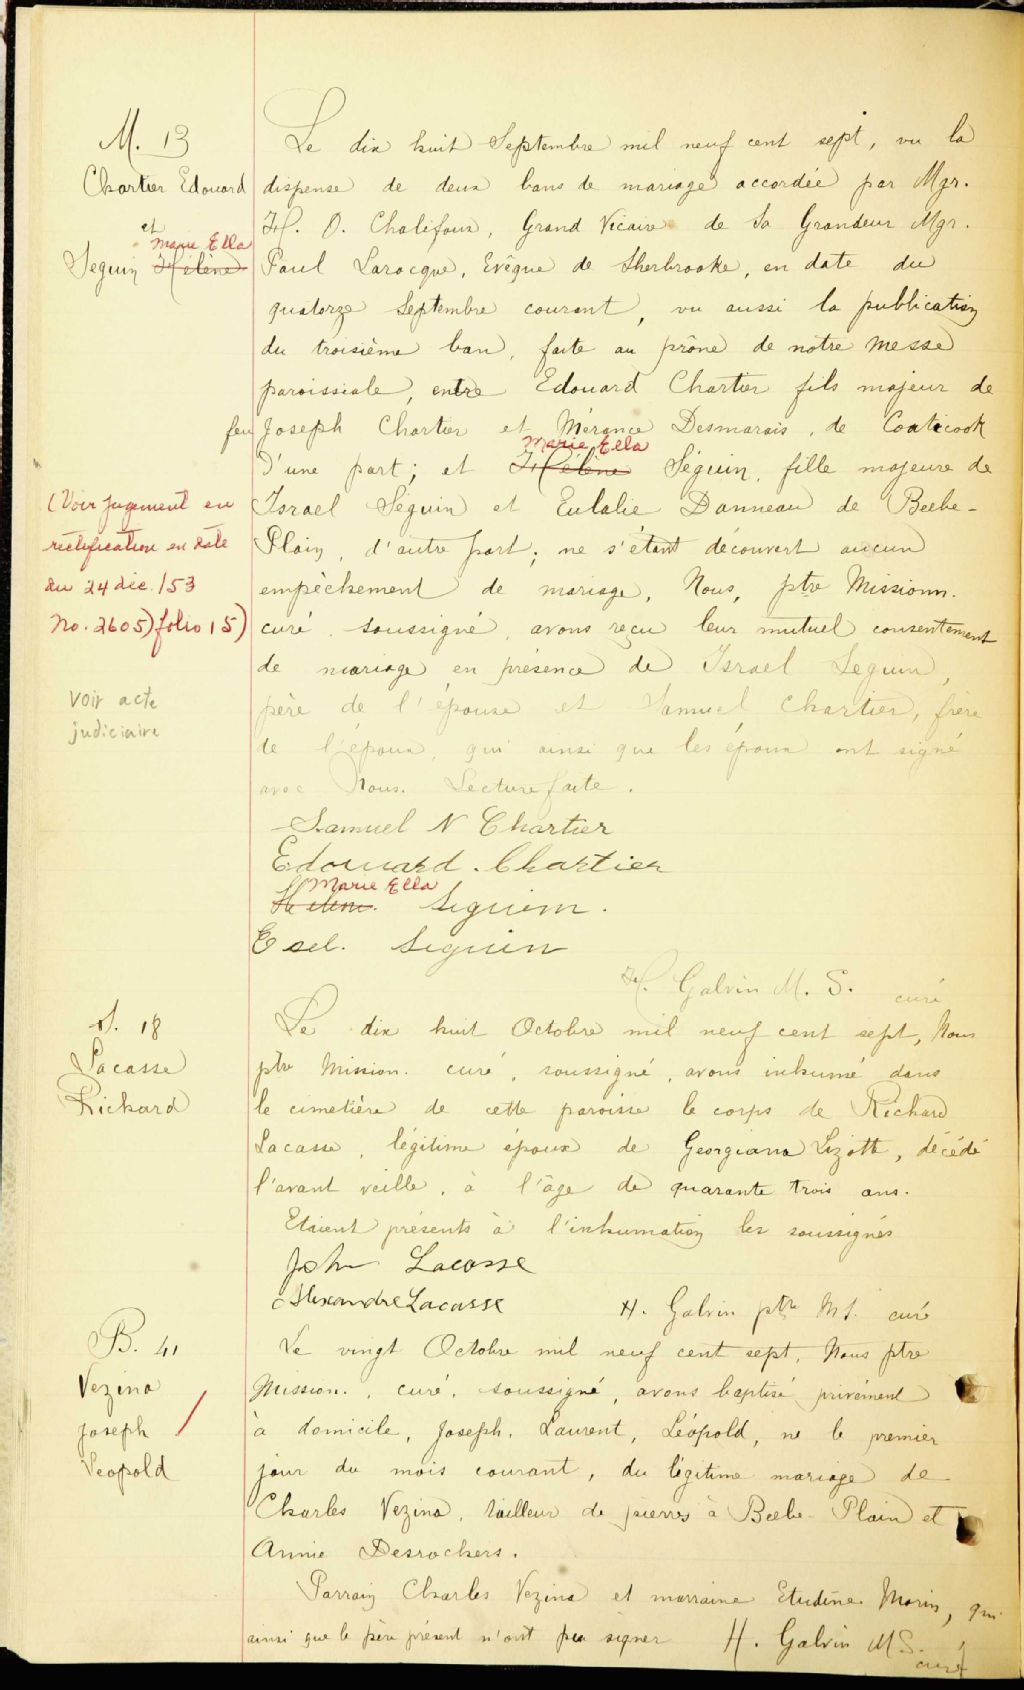 M. 13
Chartier Edouard
et
Marie Ella
Seguin Hélène
Le dix huit Septembre mil neuf cent sept, vu la
dispense de deux bans de mariage accordée par Mgr.
H. O. Chalifoux, Grand Vicaire de Sa Grandeur Mgr.
Paul Larocque, Evêque de Sherbrooke, en date du
quatorze Septembre courant, vu aussi la publication
du troisième ban, faite au prône de notre messe
paroissiale, entre Edouard Chartier fils majeur de
feu Joseph Chartier et Mérance Desmarais, de Coaticook
Marie Ella
d'une part; et Hélène Séguin, fille majeure de
Israel Séguin et Eulalie Danneau de Beebe-
Plain, d'autre part; ne s'étant découvert aucun
empêchement de mariage, Nous, ptre Missionn.
curé, soussigné, avons reçu leur mutuel consentement
de mariage en présence de Israel Seguin,
père de l'épouse et Samuel Chartier, frère
de l'époux, qui ainsi que les époux ont signé
avec Nous. Lecture faite.
(Voir jugement en
rectification en date
du 24 dec. 153
No. 2605) folio 15)
Voir acte
judiciaire
Samuel N Chartier
Edouard. Chartier
Marie Ella
Helene. Seguin.
Esel. Seguin
H. Galvin M. S. curé
S. 18
Lacasse
Richard
Le dix huit Octobre mil neuf cent sept, Nous
ptre Mission. curé, soussigné, avons inhumé dans
le cimetière de cette paroisse le corps de Richard
Lacasse, légitime époux de Georgiana Lizotte, décédé
l'avant veille, à l'âge de quarante trois ans.
Etaient présents à l'inhumation les soussignés
John Lacasse
Alexandre Lacasse H. Galvin ptre M.S. curé
B. 41
Vezina
Joseph
Leopold
Le vingt Octobre mil neuf cent sept, Nous ptre
Mission., curé, soussigné, avons baptisé privément
à domicile, Joseph, Laurent, Léopold, né le premier
jour du mois courant, du légitime mariage de
Charles Vezina, tailleur de pierres à Beebe-Plain et
Annie Desrochers.
Parrain Charles Vezina et marraine Morin, qui
ainsi que le père présent n'ont pu signer H. Galvin M S.
curé